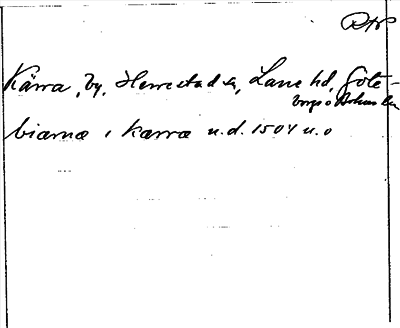 DN
Kärra, by, Herrestad sn, Lane hd, Göte-
borgs o Bohus län
biærnæ i kærræ u.d. 1504 u.o